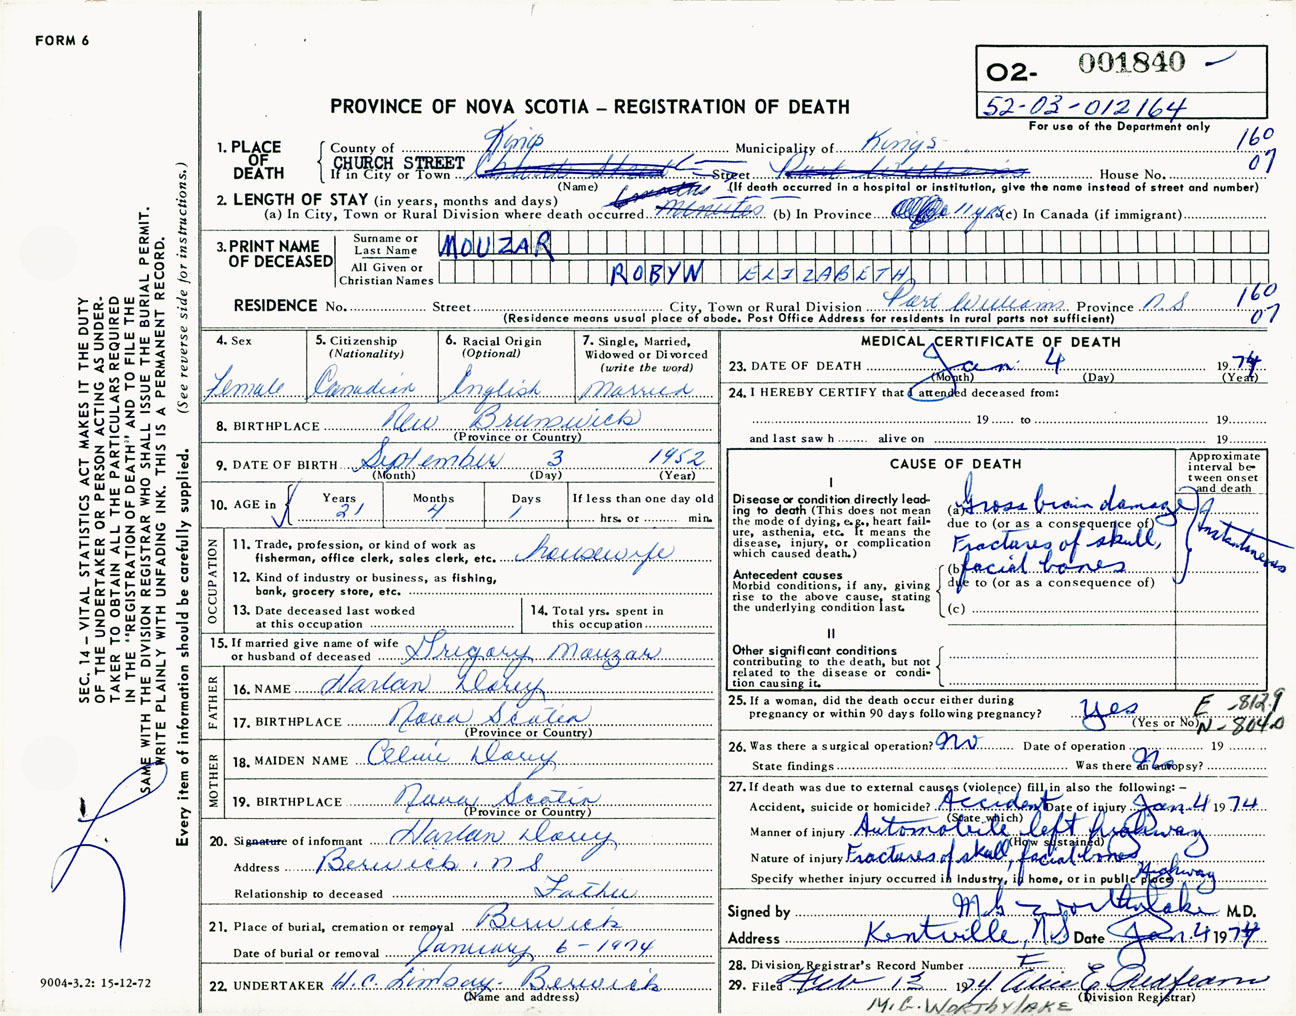 FORM 6
O2- 001840
52-03-012164
For use of the Department only
PROVINCE OF NOVA SCOTIA – REGISTRATION OF DEATH
160
07
1. PLACE OF DEATH
County of Kings Municipality of Kings
CHURCH STREET
If in City or Town Church Street Street Port Williams House No.
(Name) (If death occurred in a hospital or institution, give the name instead of street and number)
2. LENGTH OF STAY (in years, months and days)
(a) In City, Town or Rural Division where death occurred minutes (b) In Province 11 yrs (c) In Canada (if immigrant)
3. PRINT NAME OF DECEASED
Surname or Last Name MOUZAR
All Given or Christian Names ROBYN ELIZABETH
RESIDENCE No. Street City, Town or Rural Division Port Williams Province N.S
(Residence means usual place of abode. Post Office Address for residents in rural parts not sufficient)
160
07
4. Sex
Female
5. Citizenship
(Nationality)
Canadian
6. Racial Origin
(Optional)
English
7. Single, Married, Widowed or Divorced
(write the word)
Married
8. BIRTHPLACE New Brunswick
(Province or Country)
9. DATE OF BIRTH September 3 1952
(Month) (Day) (Year)
10. AGE in
Years Months Days If less than one day old
21 4 1 hrs. or min.
OCCUPATION
11. Trade, profession, or kind of work as
fisherman, office clerk, sales clerk, etc. housewife
12. Kind of industry or business, as fishing,
bank, grocery store, etc.
13. Date deceased last worked
at this occupation
14. Total yrs. spent in
this occupation
15. If married give name of wife
or husband of deceased Gregory Mouzar
FATHER
16. NAME Harlan Dorey
17. BIRTHPLACE Nova Scotia
(Province or Country)
MOTHER
18. MAIDEN NAME Celine Dorey
19. BIRTHPLACE Nova Scotia
(Province or Country)
20. Signature of informant Harlan Dorey
Address Berwick, N S
Relationship to deceased Father
21. Place of burial, cremation or removal Berwick
Date of burial or removal January 6-1974
22. UNDERTAKER H.C. Lindsay. Berwick
(Name and address)
MEDICAL CERTIFICATE OF DEATH
23. DATE OF DEATH Jan 4 1974
(Month) (Day) (Year)
24. I HEREBY CERTIFY that I attended deceased from:
19 to 19
and last saw h alive on 19
CAUSE OF DEATH
Approximate interval between onset and death
I
Disease or condition directly leading to death (This does not mean the mode of dying, e.g., heart failure, asthenia, etc. It means the disease, injury, or complication which caused death.)
(a) Gross brain damage
due to (or as a consequence of)
Fractures of skull,
(b) facial bones
due to (or as a consequence of)
Instantaneous
Antecedent causes
Morbid conditions, if any, giving rise to the above cause, stating the underlying condition last.
(c)
II
Other significant conditions
contributing to the death, but not related to the disease or condition causing it.
25. If a woman, did the death occur either during
pregnancy or within 90 days following pregnancy? Yes
(Yes or No)
E -812.9
N-804.0
26. Was there a surgical operation? No Date of operation 19
State findings Was there an autopsy? No
27. If death was due to external causes (violence) fill in also the following: –
Accident, suicide or homicide? Accident Date of injury Jan. 4 1974
(State which)
Manner of injury Automobile left highway
(How sustained)
Nature of injury Fractures of skull, facial bones
Specify whether injury occurred in industry, in home, or in public place Highway
Signed by M G Worthylake M.D.
Address Kentville, NS Date Jan. 4 1974
28. Division Registrar's Record Number
29. Filed Feb 13 1974
(Division Registrar)
M.G. WORTHYLAKE
SEC. 14 – VITAL STATISTICS ACT MAKES IT THE DUTY
OF THE UNDERTAKER OR PERSON ACTING AS UNDER-
TAKER TO OBTAIN ALL THE PARTICULARS REQUIRED
IN THE "REGISTRATION OF DEATH" AND TO FILE THE
SAME WITH THE DIVISION REGISTRAR WHO SHALL ISSUE THE BURIAL PERMIT.
WRITE PLAINLY WITH UNFADING INK. THIS IS A PERMANENT RECORD.
Every item of information should be carefully supplied. (See reverse side for instructions.)
9004-3.2: 15-12-72